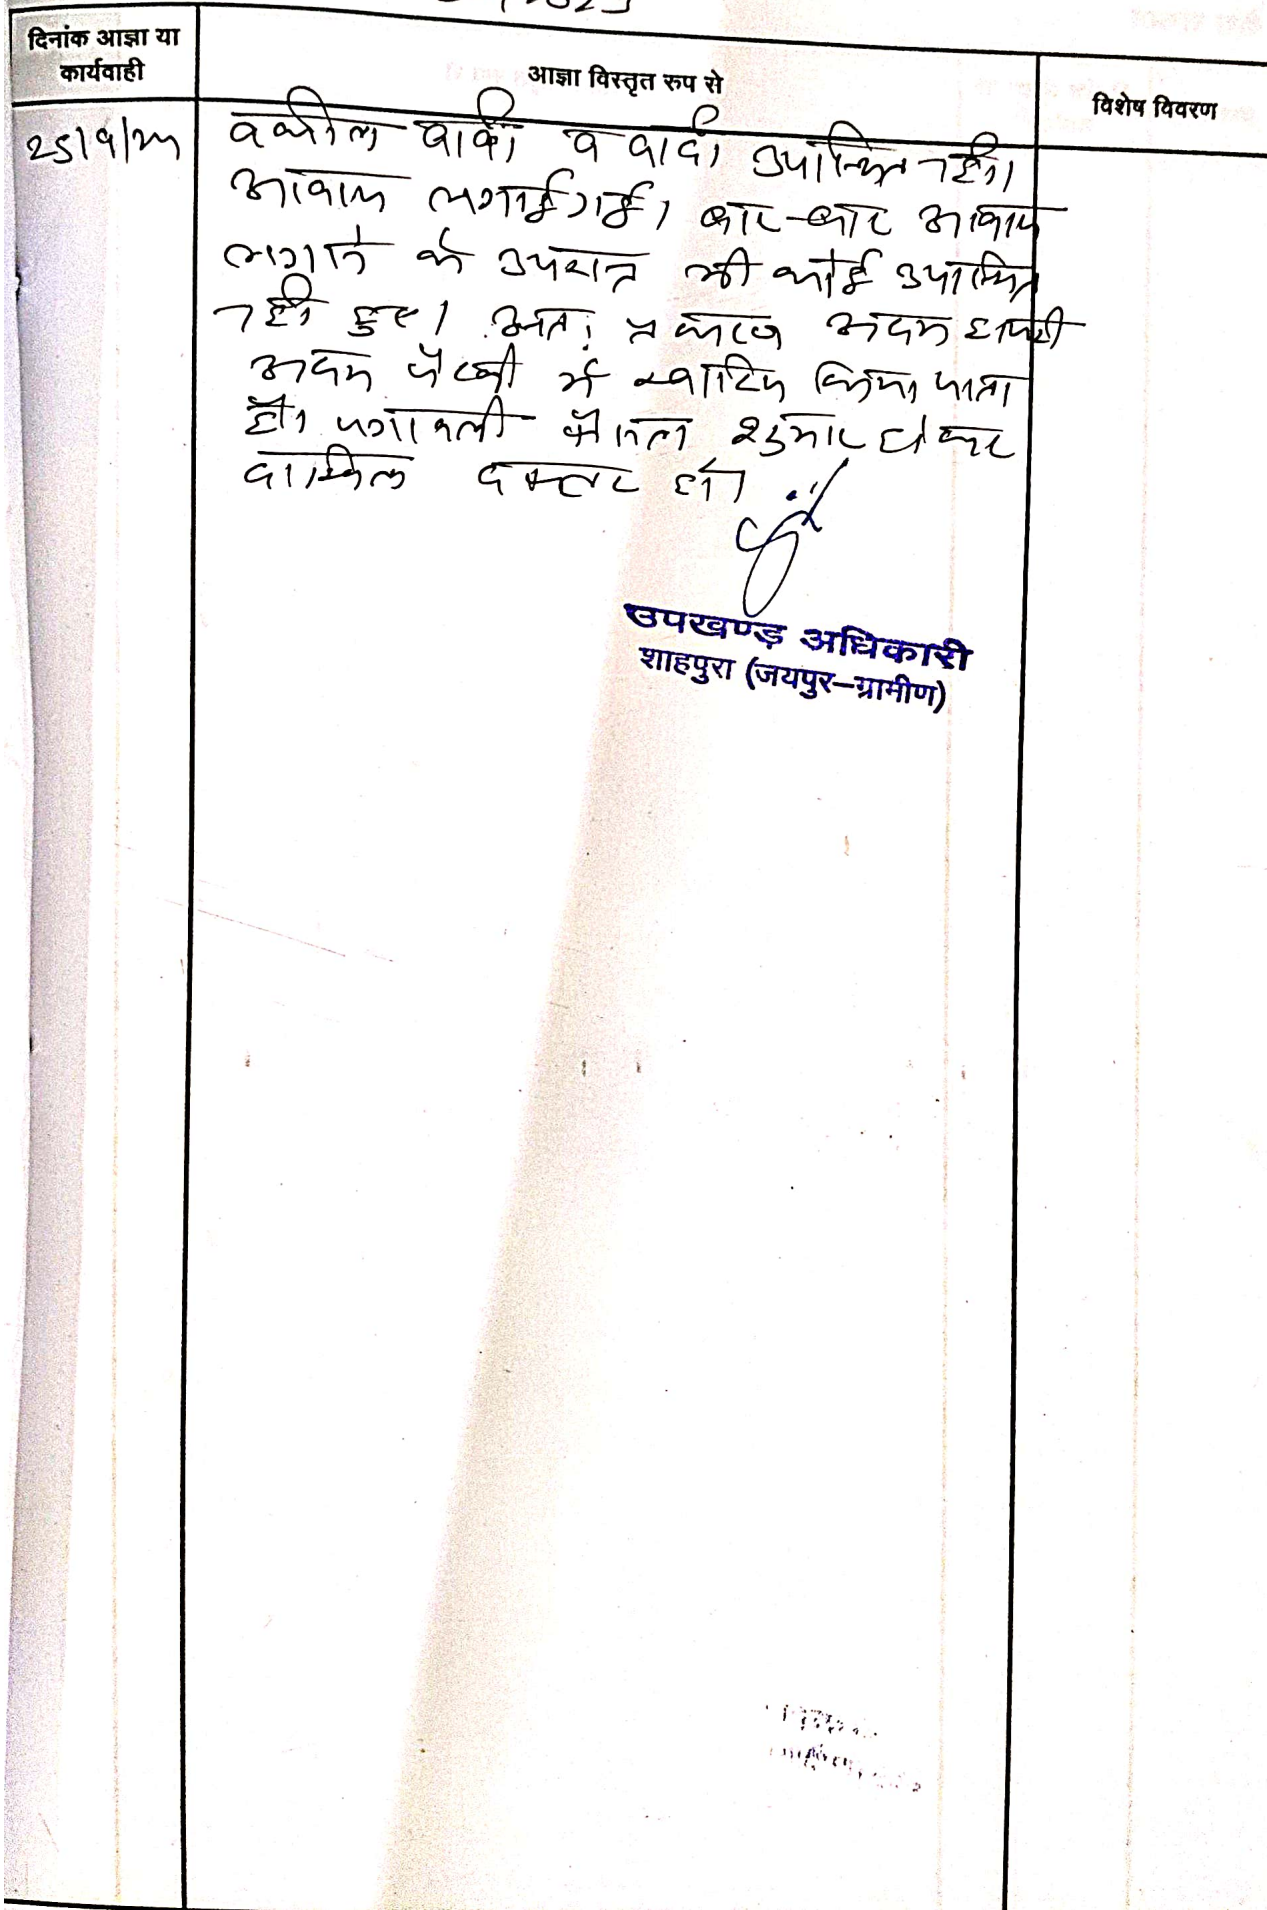 दिनांक आज्ञा या
कार्यवाही
आज्ञा विस्तृत रुप से
विशेष विवरण
वकील वादी व वादी उपस्थित नही।
आवाज लगाई गई। बार-बार आवाज
लगाने के उपरान्त भी कोई उपस्थित
नही हुए। अतः प्रकरण अदम हाजरी
अदम पैरवी में खारिज किया जाता
है। पत्रावली फैसल शुमार होकर
दाखिल दफ्तर हो।
उपखण्ड़ अधिकारी
शाहपुरा (जयपुर–ग्रामीण)